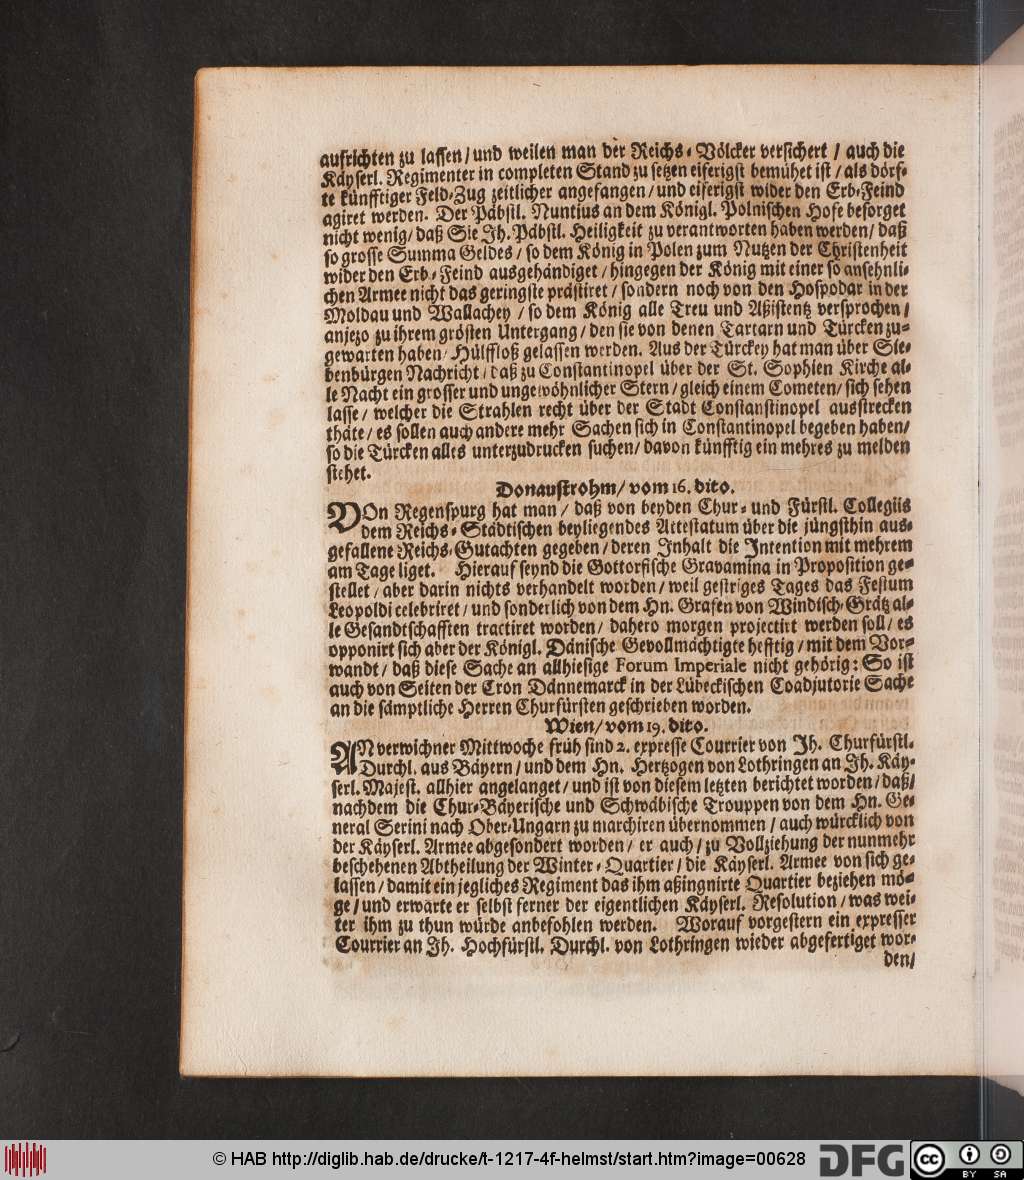 aufrichten zu lassen/ und weilen man der Reichs-Völcker versichert / auch die
Käyserl. Regimenter in completen Stand zu setzen eiferigst bemühet ist / als dörf-
te künfftiger Feld-Zug zeitlicher angefangen/ und eiferigst wider den Erb-Feind
agiret werden. Der Päbstl. Nuntius an dem Königl. Polnischen Hofe besorget
nicht wenig/ daß Sie Jh. Päbstl. Heiligkeit zu verantworten haben werden/ daß
so grosse Summa Geldes / so dem König in Polen zum Nutzen der Christenheit
wider den Erb-Feind ausgehändiget / hingegen der König mit einer so ansehnli-
chen Armee nicht das geringste prästiret / sondern noch von den Hospodar in der
Moldau und Wallachey / so dem König alle Treu und Aßistentz versprochen /
anjezo zu ihrem grösten Untergang / den sie von denen Tartarn und Türcken zu-
gewarten haben/ Hülffloß gelassen werden. Aus der Türckey hat man über Sie-
benbürgen Nachricht / daß zu Constantinopel über der St. Sophien Kirche al-
le Nacht ein grosser und ungewöhnlicher Stern / gleich einem Cometen/ sich sehen
lasse / welcher die Strahlen recht über der Stadt Constanstinopel ausstrecken
thäte / es sollen auch andere mehr Sachen sich in Constantinopel begeben haben/
so die Türcken alles unterzudrucken suchen/ davon künfftig ein mehres zu melden
stehet.
Donaustrohm/ vom 16. dito.
VOn Regenspurg hat man / daß von beyden Chur- und Fürstl. Collegiis
dem Reichs-Städtischen beyliegendes Attestatum über die jüngsthin aus-
gefallene Reichs-Gutachten gegeben / deren Inhalt die Intention mit mehrem
am Tage liget. Hierauf seynd die Gottorfische Gravamina in Proposition ge-
stellet / aber darin nichts verhandelt worden / weil gestriges Tages das Festum
Leopoldi celebriret / und sonderlich von dem Hn. Grafen von Windisch-Grätz al-
le Gesandtschafften tractiret worden/ dahero morgen projectirt werden soll / es
opponirt sich aber der Königl. Dänische Gevollmächtigte hefftig / mit dem Vor-
wandt / daß diese Sache an allhiesige Forum Imperiale nicht gehörig: So ist
auch von Seiten der Cron Dännemarck in der Lübeckischen Coadjutorie Sache
an die sämptliche Herren Churfürsten geschrieben worden.
Wien/ vom 19. dito.
AN verwichner Mittwoche früh sind 2. expresse Courrier von Jh. Churfürstl.
Durchl. aus Bäyern / und dem Hn. Hertzogen von Lothringen an Jh. Käy-
serl. Majest. allhier angelanget / und ist von diesem letzten berichtet worden/ daß/
nachdem die Chur-Bäyerische und Schwäbische Trouppen von dem Hn. Ge-
neral Serini nach Ober-Ungarn zu marchiren übernommen / auch würcklich von
der Käyserl. Armee abgesondert worden / er auch / zu Vollziehung der nunmehr
beschehenen Abtheilung der Winter-Quartier / die Käyserl. Armee von sich ge-
lassen / damit ein jegliches Regiment das ihm aßingnirte Quartier beziehen mö-
ge / und erwarte er selbst ferner der eigentlichen Käyserl. Resolution / was wei-
ter ihm zu thun würde anbefohlen werden. Worauf vorgestern ein expresser
Courrier an Jh. Hochfürstl. Durchl. von Lothringen wieder abgefertiget wor-
den/
© HAB http://diglib.hab.de/drucke/t-1217-4f-helmst/start.htm?image=00628
DFG
cc BY SA